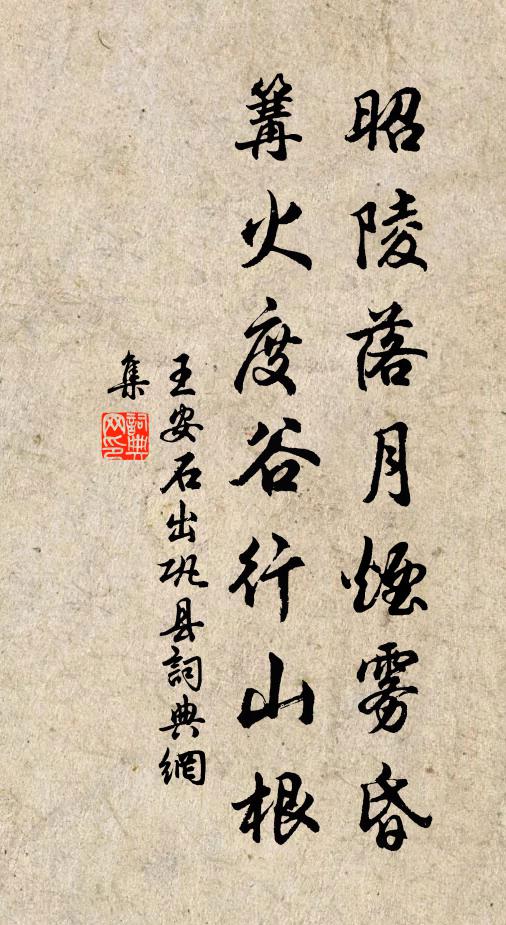 昭陵落月煙雾昏
篝火度谷行山根
王安石出巩县詞典網
集
詞典
网印